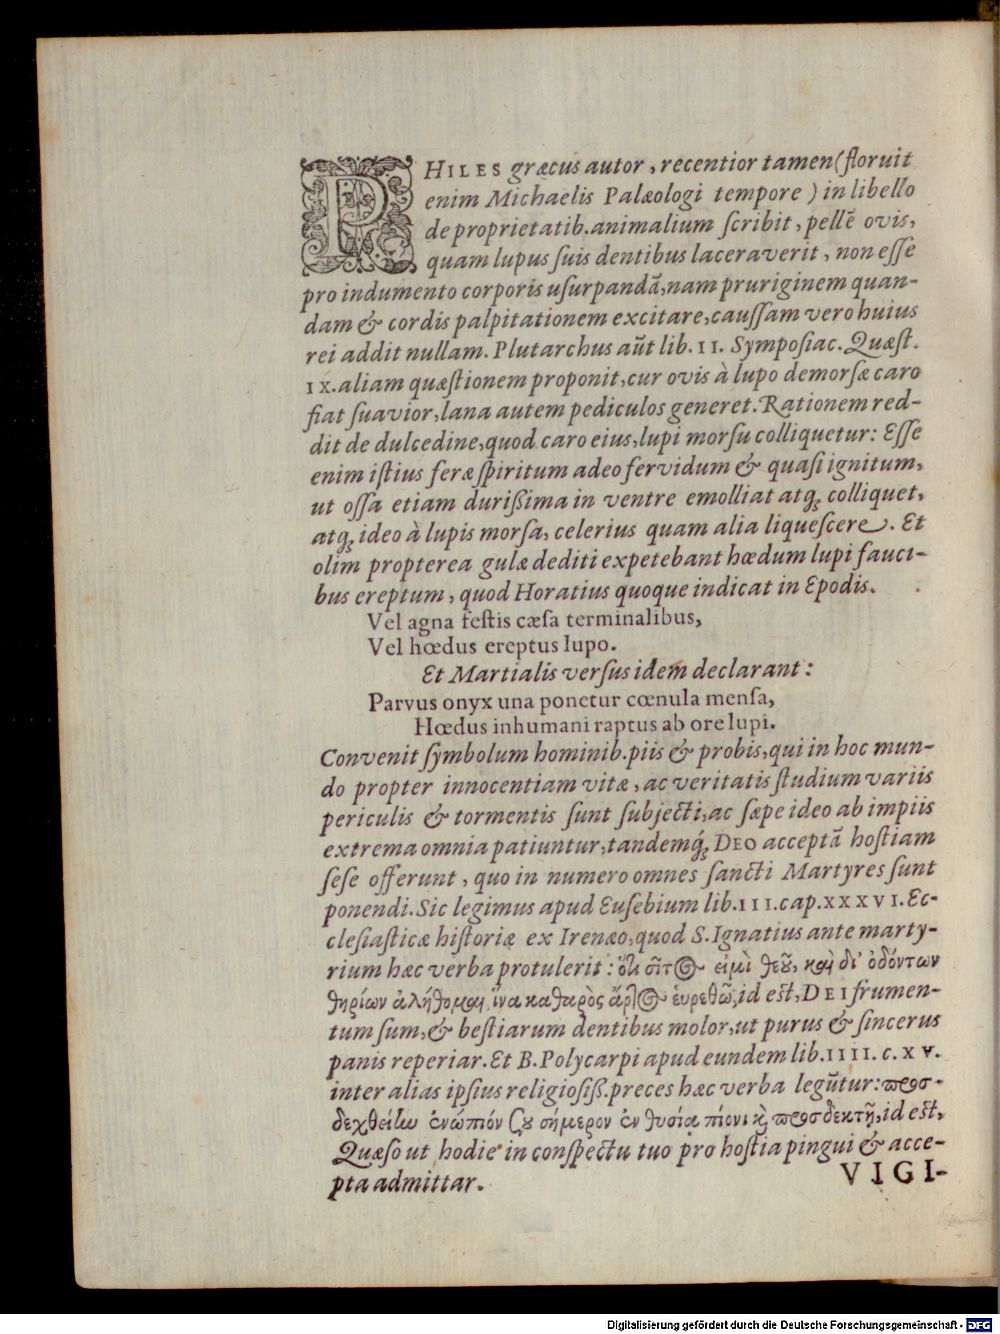 PHILES græcus autor, recentior tamen (floruit
enim Michaelis Palæologi tempore) in libello
de proprietatib. animalium ſcribit, pellē ovis,
quam lupus ſuis dentibus laceraverit, non eſſe
pro indumento corporis uſurpandā, nam pruriginem quan-
dam & cordis palpitationem excitare, cauſſam vero huius
rei addit nullam. Plutarchus aūt lib. II. Sympoſiac. Quæſt.
IX. aliam quæſtionem proponit, cur ovis à lupo demorſæ caro
fiat ſuavior, lana autem pediculos generet. Rationem red-
dit de dulcedine, quod caro eius, lupi morſu colliquetur: Eſſe
enim iſtius feræ ſpiritum adeo fervidum & quaſi ignitum,
ut oſſa etiam durißima in ventre emolliat atq; colliquet,
atq; ideo à lupis morſa, celerius quam alia liqueſcere. Et
olim propterea gulæ dediti expetebant hœdum lupi fauci-
bus ereptum, quod Horatius quoque indicat in Epodis.
Vel agna feſtis cæſa terminalibus,
Vel hœdus ereptus lupo.
Et Martialis verſus idem declarant:
Parvus onyx una ponetur cœnula menſa,
Hœdus inhumani raptus ab ore lupi.
Convenit ſymbolum hominib. piis & probis, qui in hoc mun-
do propter innocentiam vitæ, ac veritatis ſtudium variis
periculis & tormentis ſunt ſubjecti, ac ſæpe ideo ab impiis
extrema omnia patiuntur, tandemq́; DEO acceptā hoſtiam
ſeſe offerunt, quo in numero omnes ſancti Martyres ſunt
ponendi. Sic legimus apud Euſebium lib. III. cap. XXXVI. Ec-
cleſiaſticæ hiſtoriæ ex Irenæo, quod S. Ignatius ante marty-
rium hæc verba protulerit: ὅτι σῖτος εἰμὶ θεοῦ, καὶ δι' ὀδόντων
θηρίων ἀλήθομαι, ἵνα καθαρὸς ἄρτος ἑυρεθῶ, id eſt, DEI frumen-
tum ſum, & beſtiarum dentibus molor, ut purus & ſincerus
panis reperiar. Et B. Polycarpi apud eundem lib. IIII. c. XV.
inter alias ipſius religioſiß. preces hæc verba legūtur: προσ-
δεχθείην ἐνώπιόν ςου σήμερον ἐν θυσίᾳ πίονι καὶ προσδεκτῇ, id eſt,
Quæſo ut hodie in conſpectu tuo pro hoſtia pingui & acce-
pta admittar.
VIGI-
Digitalisierung gefördert durch die Deutsche Forschungsgemeinschaft - DFG